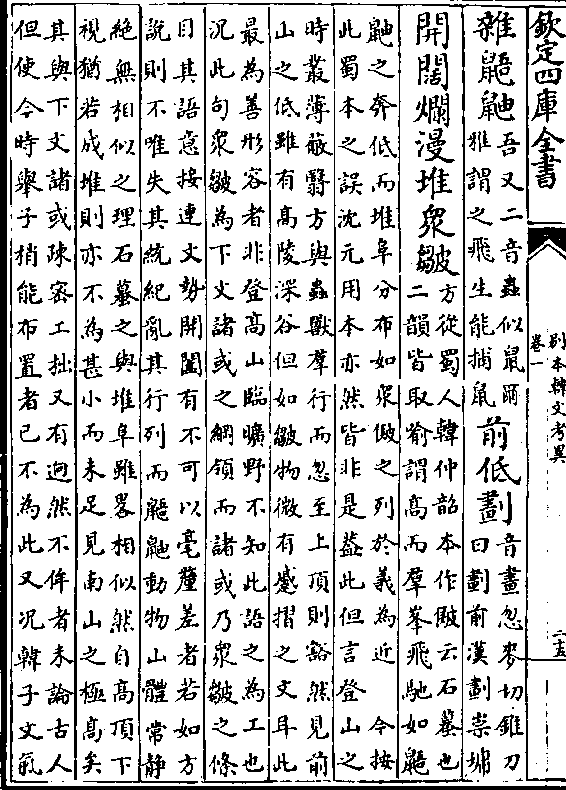 欽定四庫全書
別本韓文考異
卷一
二十五
雜鼯鼬
吾又二音蟲似鼠爾
雅謂之飛生能捕鼠
前低劃
音畫忽麥切錐刀
曰劃前漢劃崇墉
開闊爛漫堆衆皺
方從蜀人韓仲韶本作云石蟇也
二韻皆取喻謂高而羣峯飛馳如鼯
鼬之奔低而堆阜分布如衆之列於義為近 今按
此蜀本之誤沈元用本亦然皆非是葢此但言登山之
時叢薄蔽翳方與蟲獸羣行而忽至上頂則豁然見前
山之低雖有高陵深谷但如皺物微有蹙摺之文耳此
最為善形容者非登高山臨曠野不知此語之為工也
況此句衆皺為下文諸或之綱領而諸或乃衆皺之條
目其語意接連文勢開闔有不可以毫釐差者若如方
說則不唯失其統紀亂其行列而鼯鼬動物山體常静
絶無相似之理石蟇之與堆阜雖畧相似然自高頂下
視猶若成堆則亦不為甚小而未足見南山之極高矣
其與下文諸或疎密工拙又有逈然不侔者未論古人
但使今時舉子稍能布置者已不為此又況韓子文氣